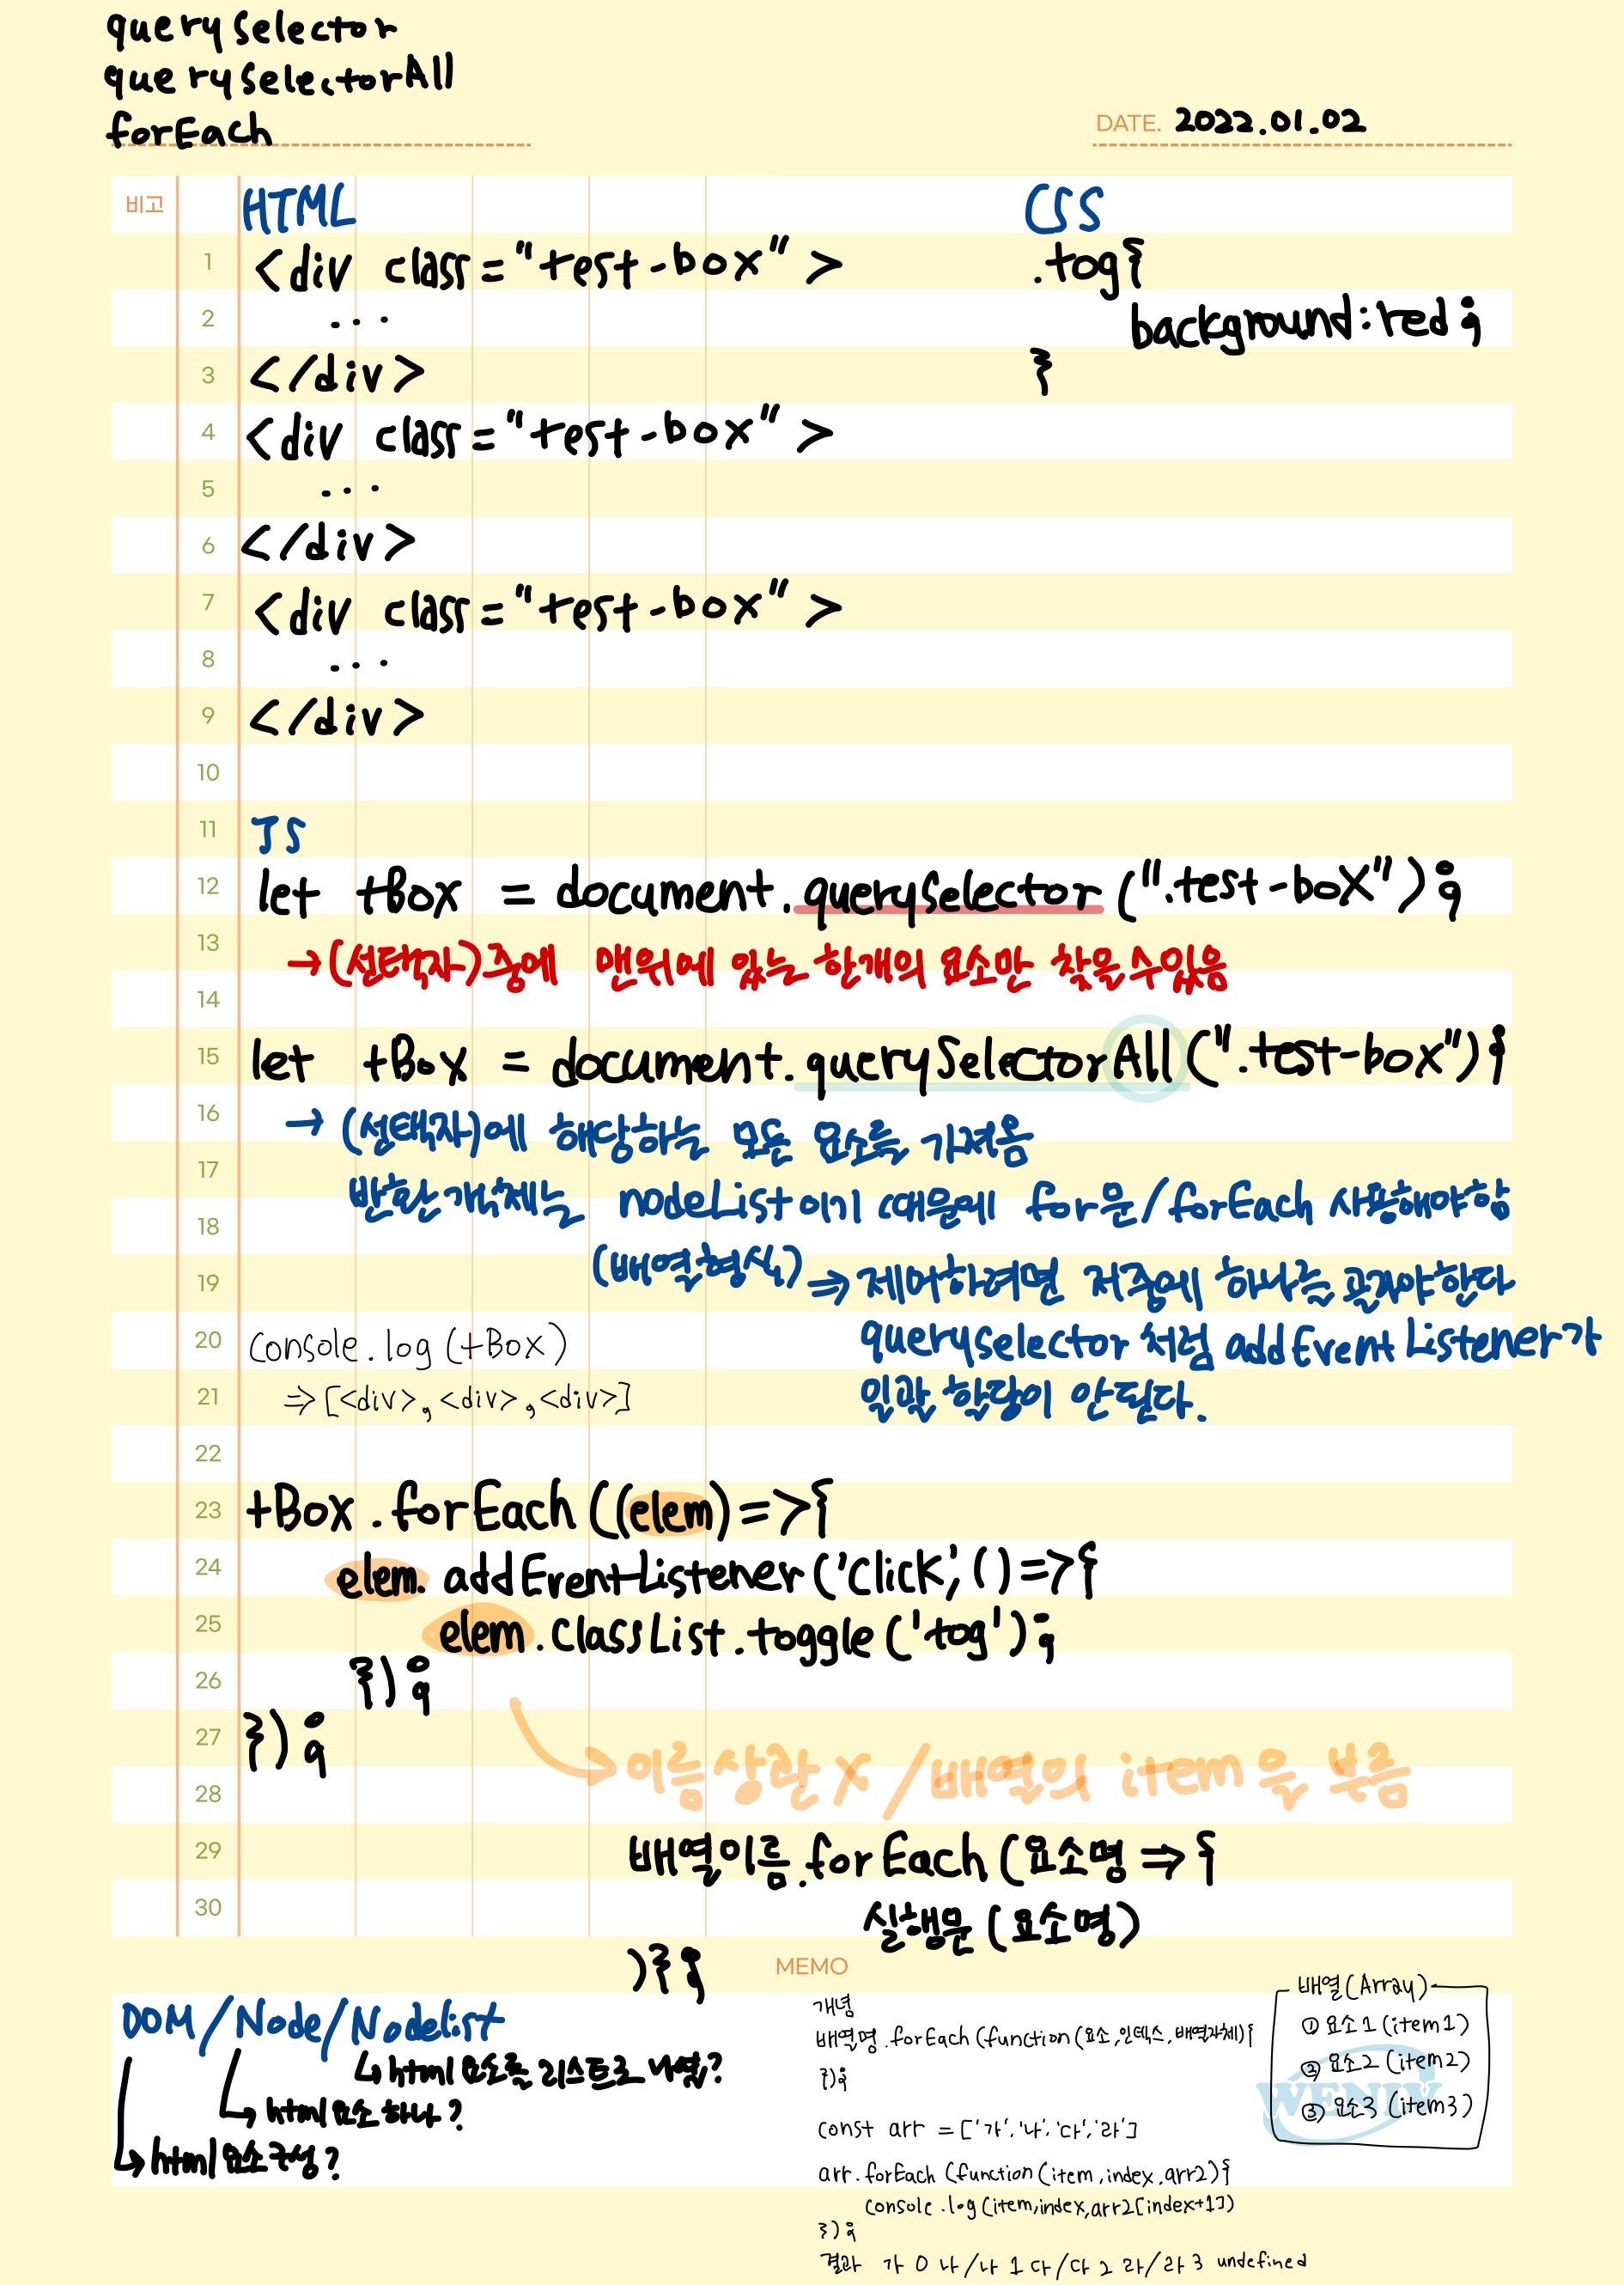 querySelector
querySelectorAll
forEach
DATE. 2022.01.02
비고
HTML
CSS
1 <div class="test-box">
.tog{
2 ...
background:red;
3 </div>
}
4 <div class="test-box">
5 ...
6 </div>
7 <div class="test-box">
8 ...
9 </div>
10
11 JS
12 let tBox = document.querySelector(".test-box");
13 →(선택자)중에 맨위에 있는 한개의 요소만 찾을수있음
14
15 let tBox = document.querySelectorAll(".test-box")}
16 → (선택자)에 해당하는 모든 요소를 가져옴
17 반환객체는 nodeList이기 때문에 for문/forEach 사용해야함
18
(배열형식)
19 ⇒ 제어하려면 저중에 하나를 골라야한다
20 console.log(tBox)
querySelector처럼 addEventListener가
21 ⇒[<div>,<div>,<div>]
일괄 할당이 안된다.
22
23 tBox.forEach((elem)=>{
24 elem. addEventListener('click',()=>{
25 elem.classList.toggle('tog');
26 });
27 });
→이름상관X/배열의 item을 부름
28
29 배열이름.forEach(요소명⇒{
30 실행문(요소명)
)};
MEMO
DOM/Node/Nodelist
↳html요소를 리스트로 나열?
↳html요소하나?
↳html요소구성?
개념
배열명.forEach(function(요소,인덱스,배열자체){
});
const arr = ['가','나','다','라']
arr.forEach(function(item,index,arr2){
console.log(item,index,arr2[index+1])
});
결과 가 0 나/나 1 다/다 2 라/라 3 undefined
배열(Array)
① 요소1(item1)
② 요소2(item2)
③ 요소3(item3)
WENIV